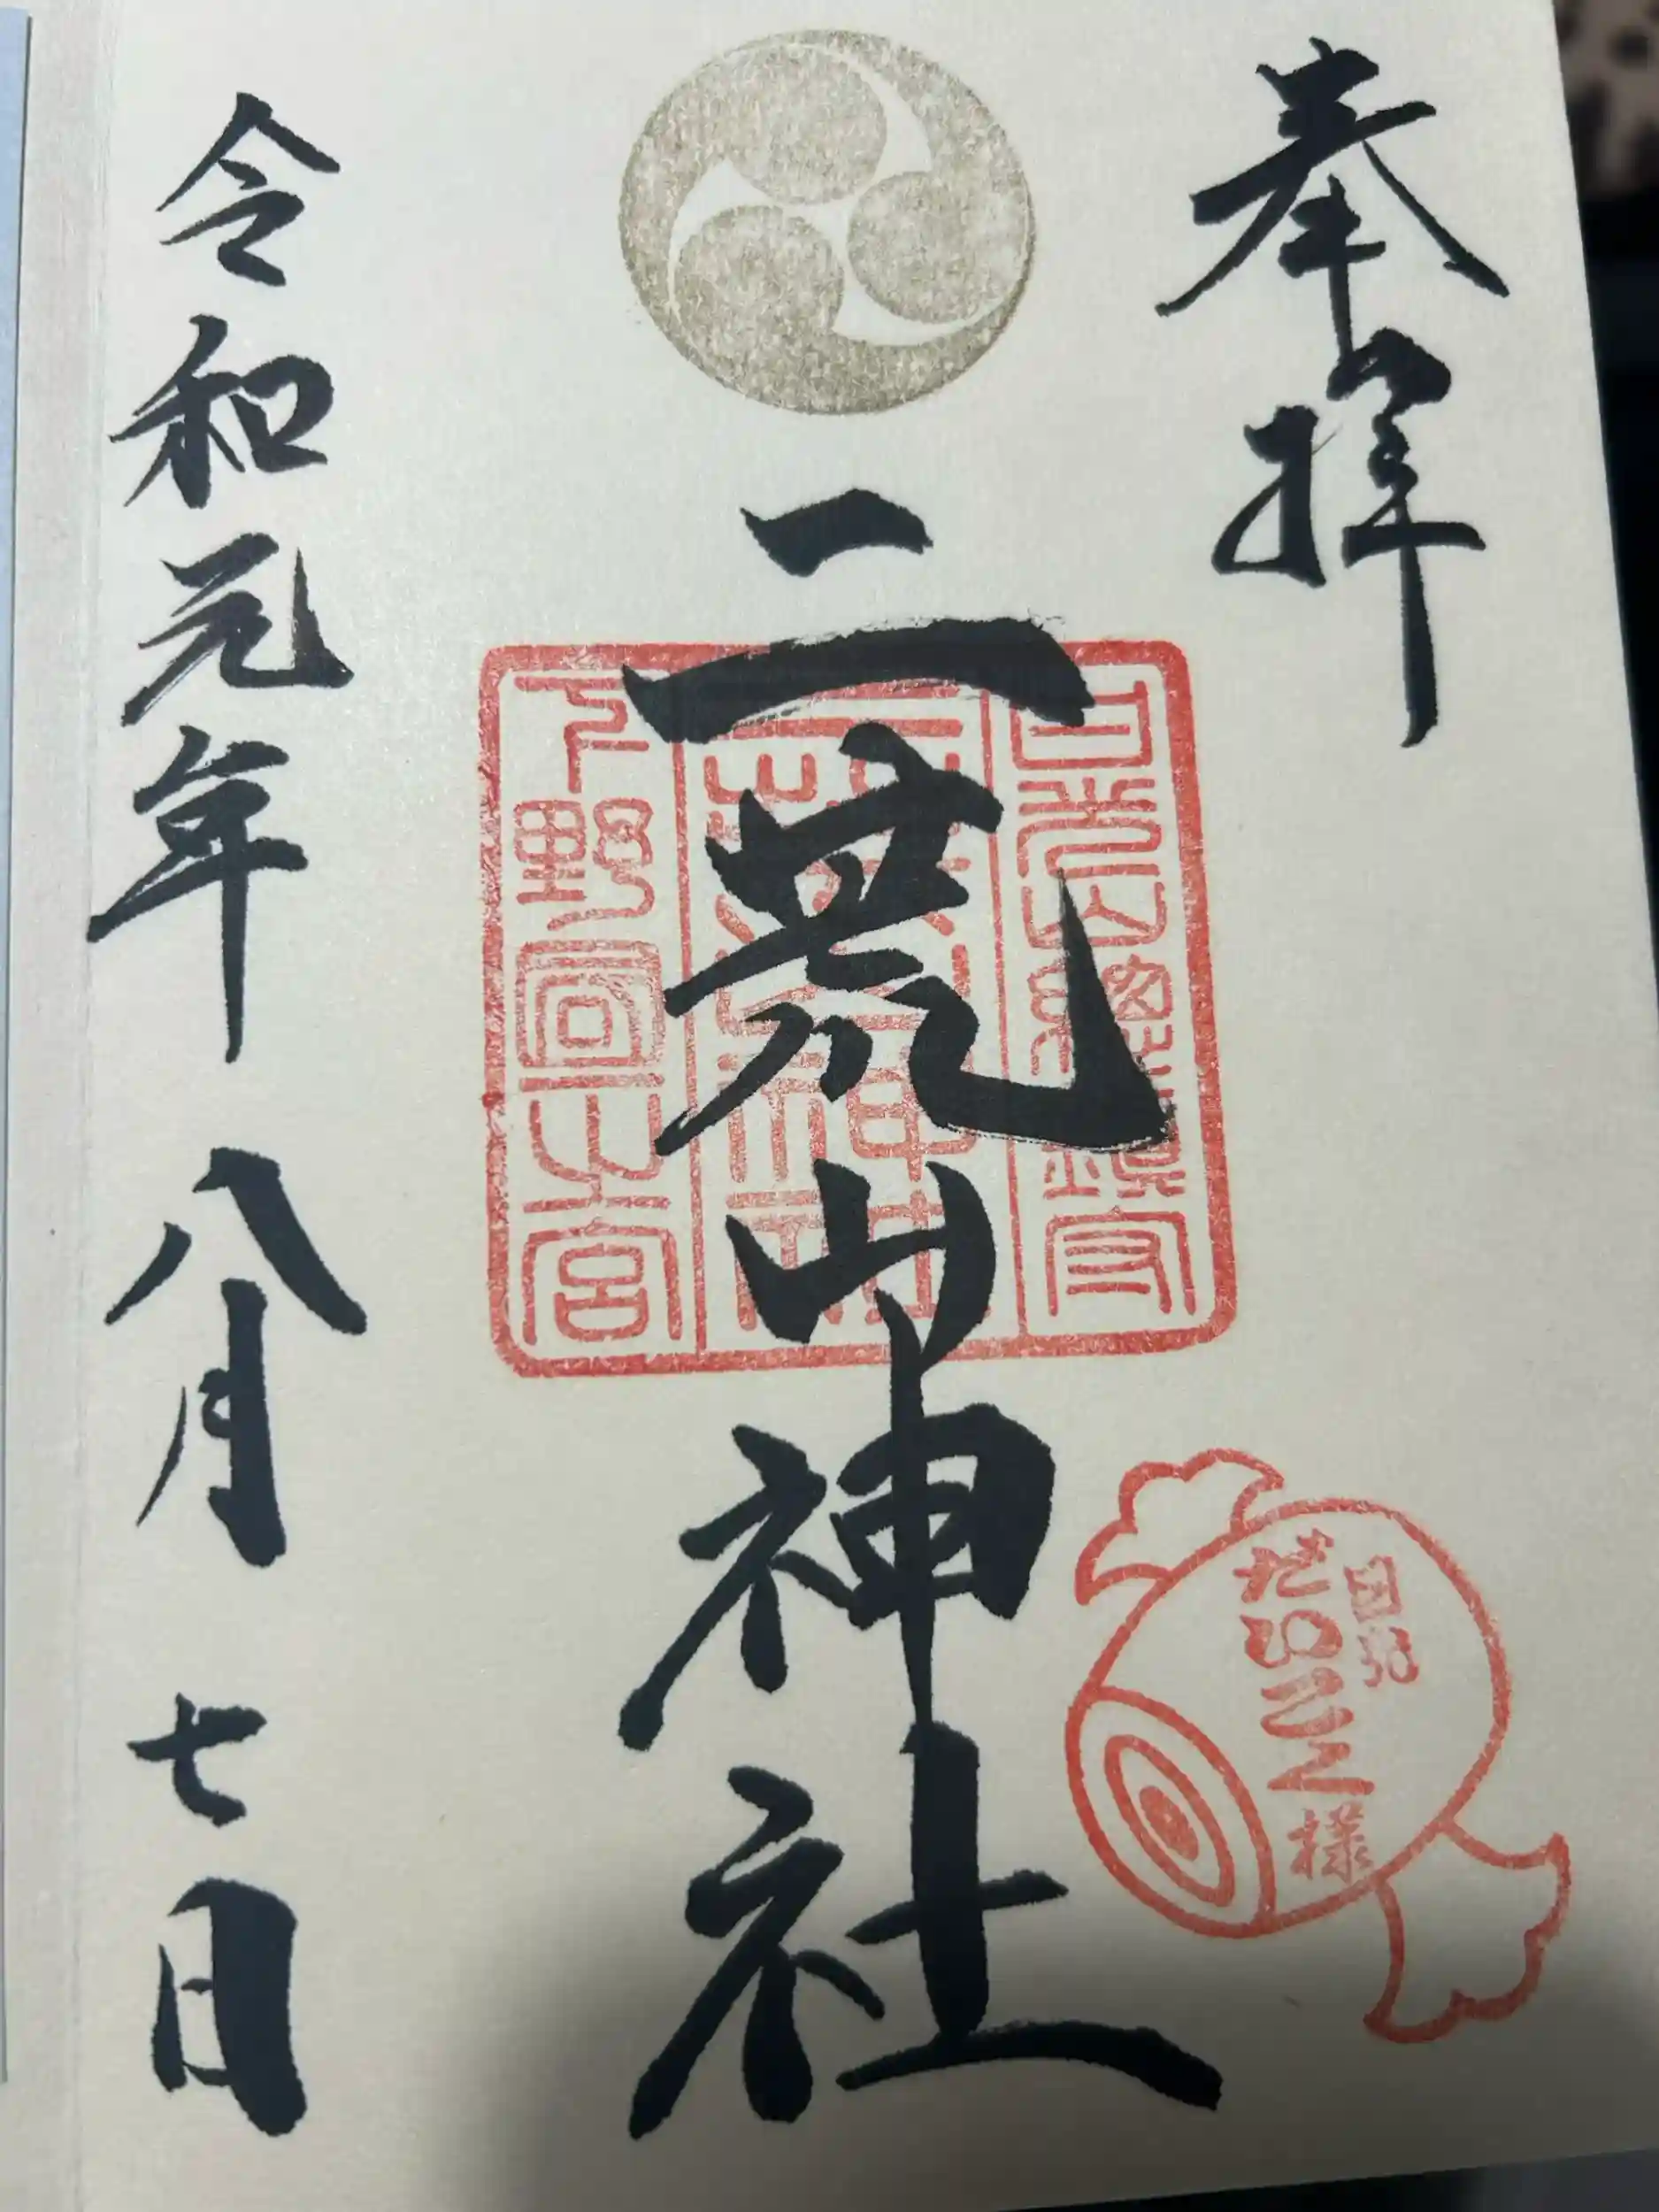 奉拝
日光
だいこく
様
日光山總鎮守
二荒山神社
二荒山神社
下野國一之宮
令和元年八月七日